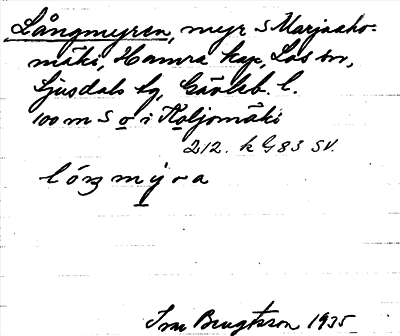 Långmyren, myr S Marjaaho-
mäki, Hamra kap, Los sn,
Ljusdals tg, Gävleb. l.
100 m S o i Koljomäki
212. k G83 SV.
lóŋmy̌ra
Bengtsson 1935